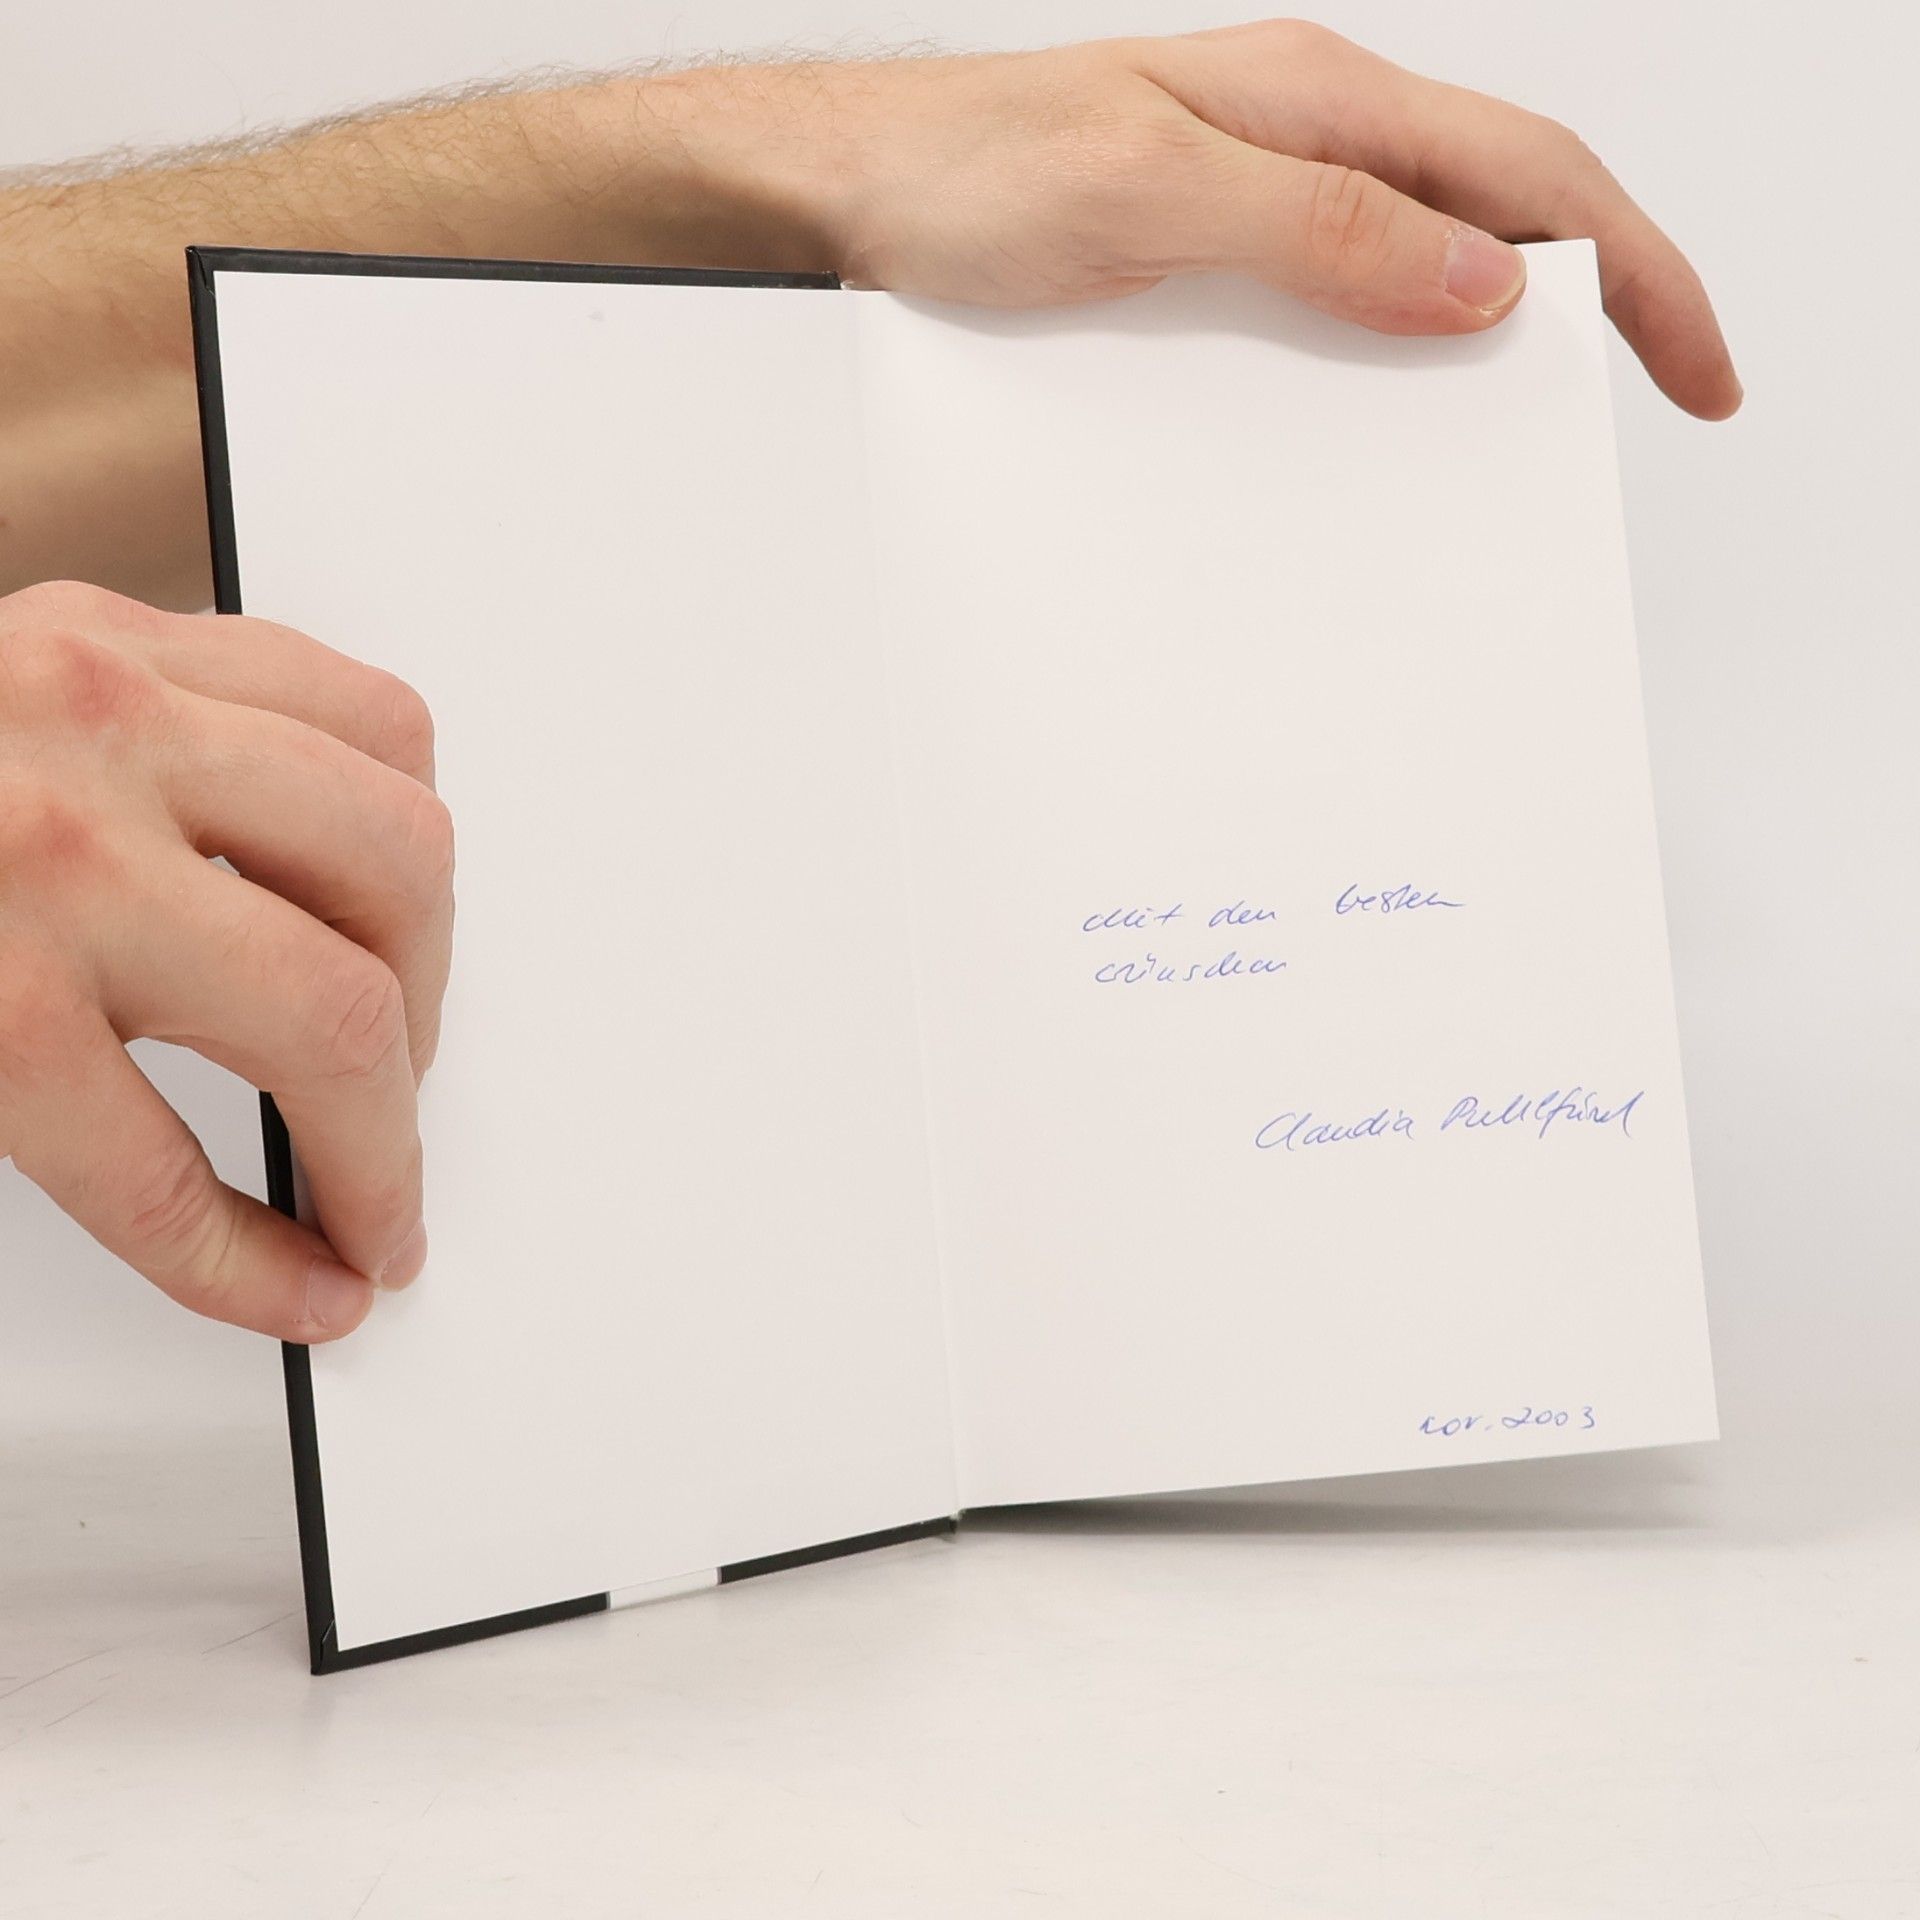 Mit den besten
Wünschen
Claudia Puhlfürst
Nov. 2003